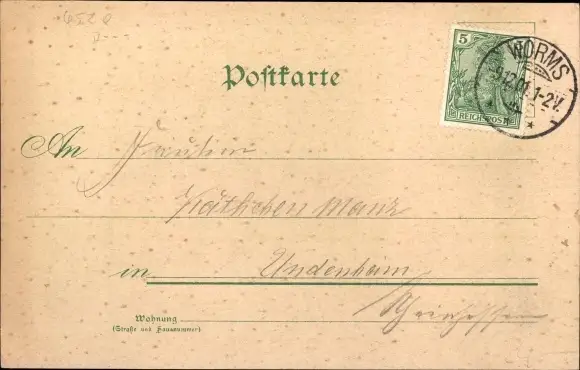 5
REICHSPOST
WORMS
9.12.01.1-2V.
Postkarte
An Fräulein
Käthchen Manz
in Undenheim
Rheinhessen
Wohnung
(Straße und Hausnummer)